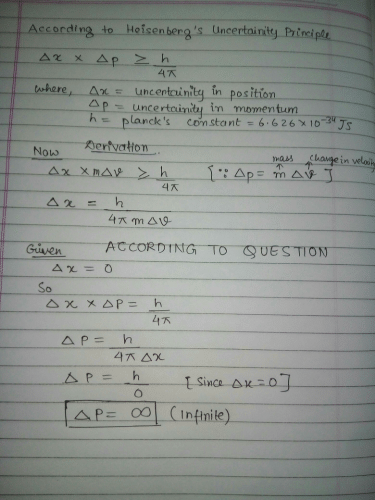 According to Heisenberg's Uncertainity Principle
Δx × Δp ≥ h/4π
where, Δx = uncertainity in position
Δp = uncertainity in momentum
h = planck's constant = 6.626 × 10⁻³⁴ JS
Now Derivation.
mass change in velocity
Δx × mΔv ≥ h/4π [∵ Δp = m Δv]
Δx = h/4πmΔv
Given ACCORDING TO QUESTION
Δx = 0
So
Δx × ΔP = h/4π
ΔP = h/4πΔx
ΔP = h/0 [Since Δx=0]
ΔP = ∞ (Infinite)